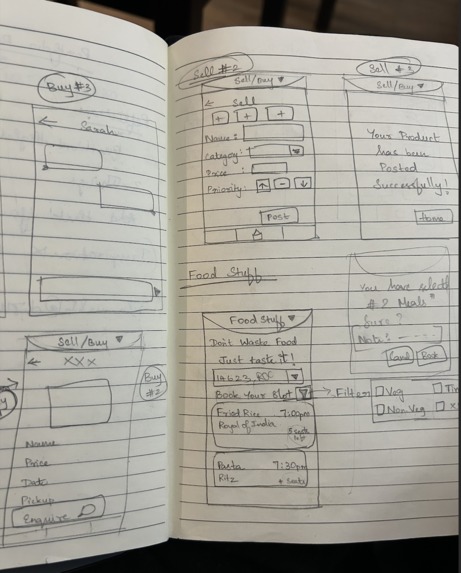 Buy #3
Sarah
Sell/Buy
XXX
Buy #2
Name
Price
Date
Pickup
Enquire
Sell #2
Sell/Buy
Sell
Name:
Category:
Price:
Priority:
Post
Sell #3
Sell/Buy
Your Product
has been
Posted
Successfully!
Home
Food Stuff
Food Stuff
Don't Waste Food
Just taste it!
Book Your Slot
Filter
Veg
Non Veg
Fried Rice 7:00pm
Royal of India
5 seats
left
Pasta 7:30pm
Ritz
seats
You have select
#2 Meals"
Sure?
Note: - - - -
Cancel Book